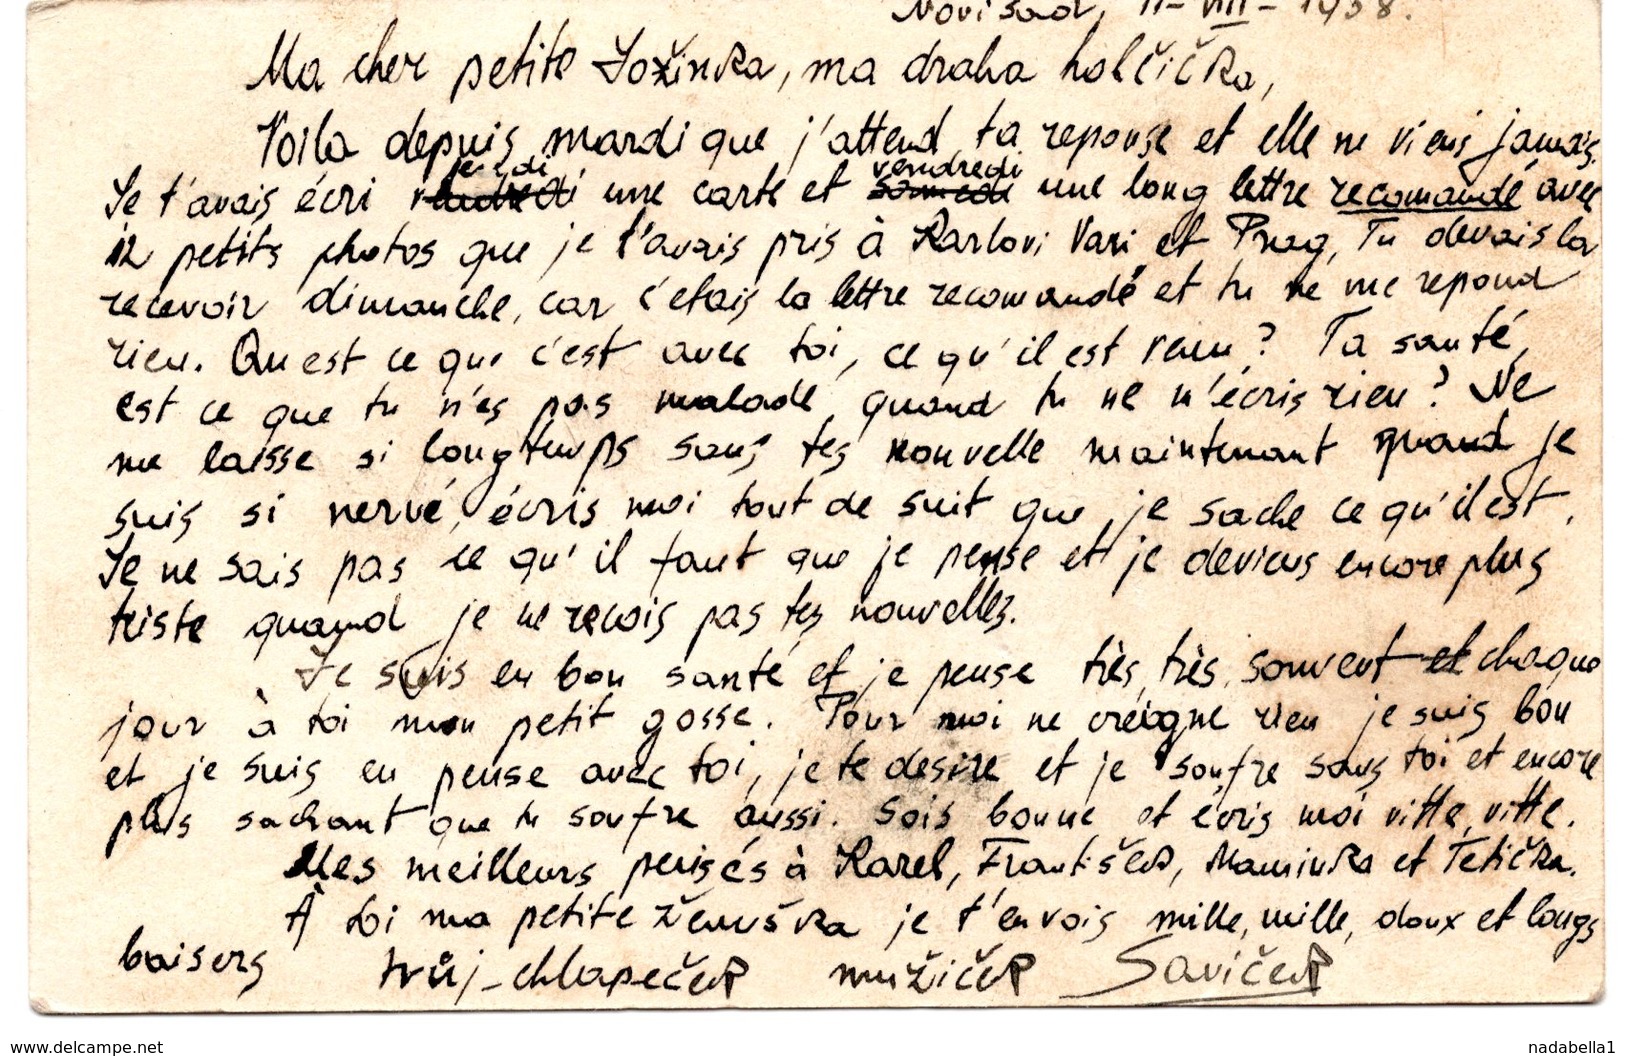 Novi Sad, 11-VIII-1938.
Ma cher petite Jožinka, ma draha holčička,
Voila depuis mardi que j'attend ta reponse et elle ne viens jamais.
jeudi vendredi
Je t'avais écri vendredi une carte et samedi une long lettre recomandé avec
12 petits photos que je t'avais pris à Karlovi Vari et Prag, Tu devais la
recevoir dimanche, car c'etais la lettre recomandé et tu ne me repond
rien. Qu est ce que c'est avec toi, ce qu'il est venu? Ta santé,
est ce que tu n'es pas malade, quand tu ne m'écris rien? Ne
me laisse si longtemps sans tes nouvelle maintenant quand je
suis si nervé, écris moi tout de suit que je sache ce qu'il est.
Je ne sais pas ce qu'il faut que je pense et je deviens encore plus
triste quand je ne reçois pas tes nouvelles.
Je suis en bon santé et je pense très, très, souvent et chaque
jour à toi mon petit gosse. Pour moi ne creigne rien je suis bon
et je suis en pense avec toi, je te desire et je soufre sans toi et encore
plus sachant que tu soufre aussi. Sois bonne et écris moi vitte, vitte.
Mes meilleurs pensés à Karel, František, Maminka et Tetička.
À toi ma petite ženuška je t'envois mille, mille, doux et longs
baisers tvůj-chlapeček mužiček Saviček
www.delcampe.net
nadabella1